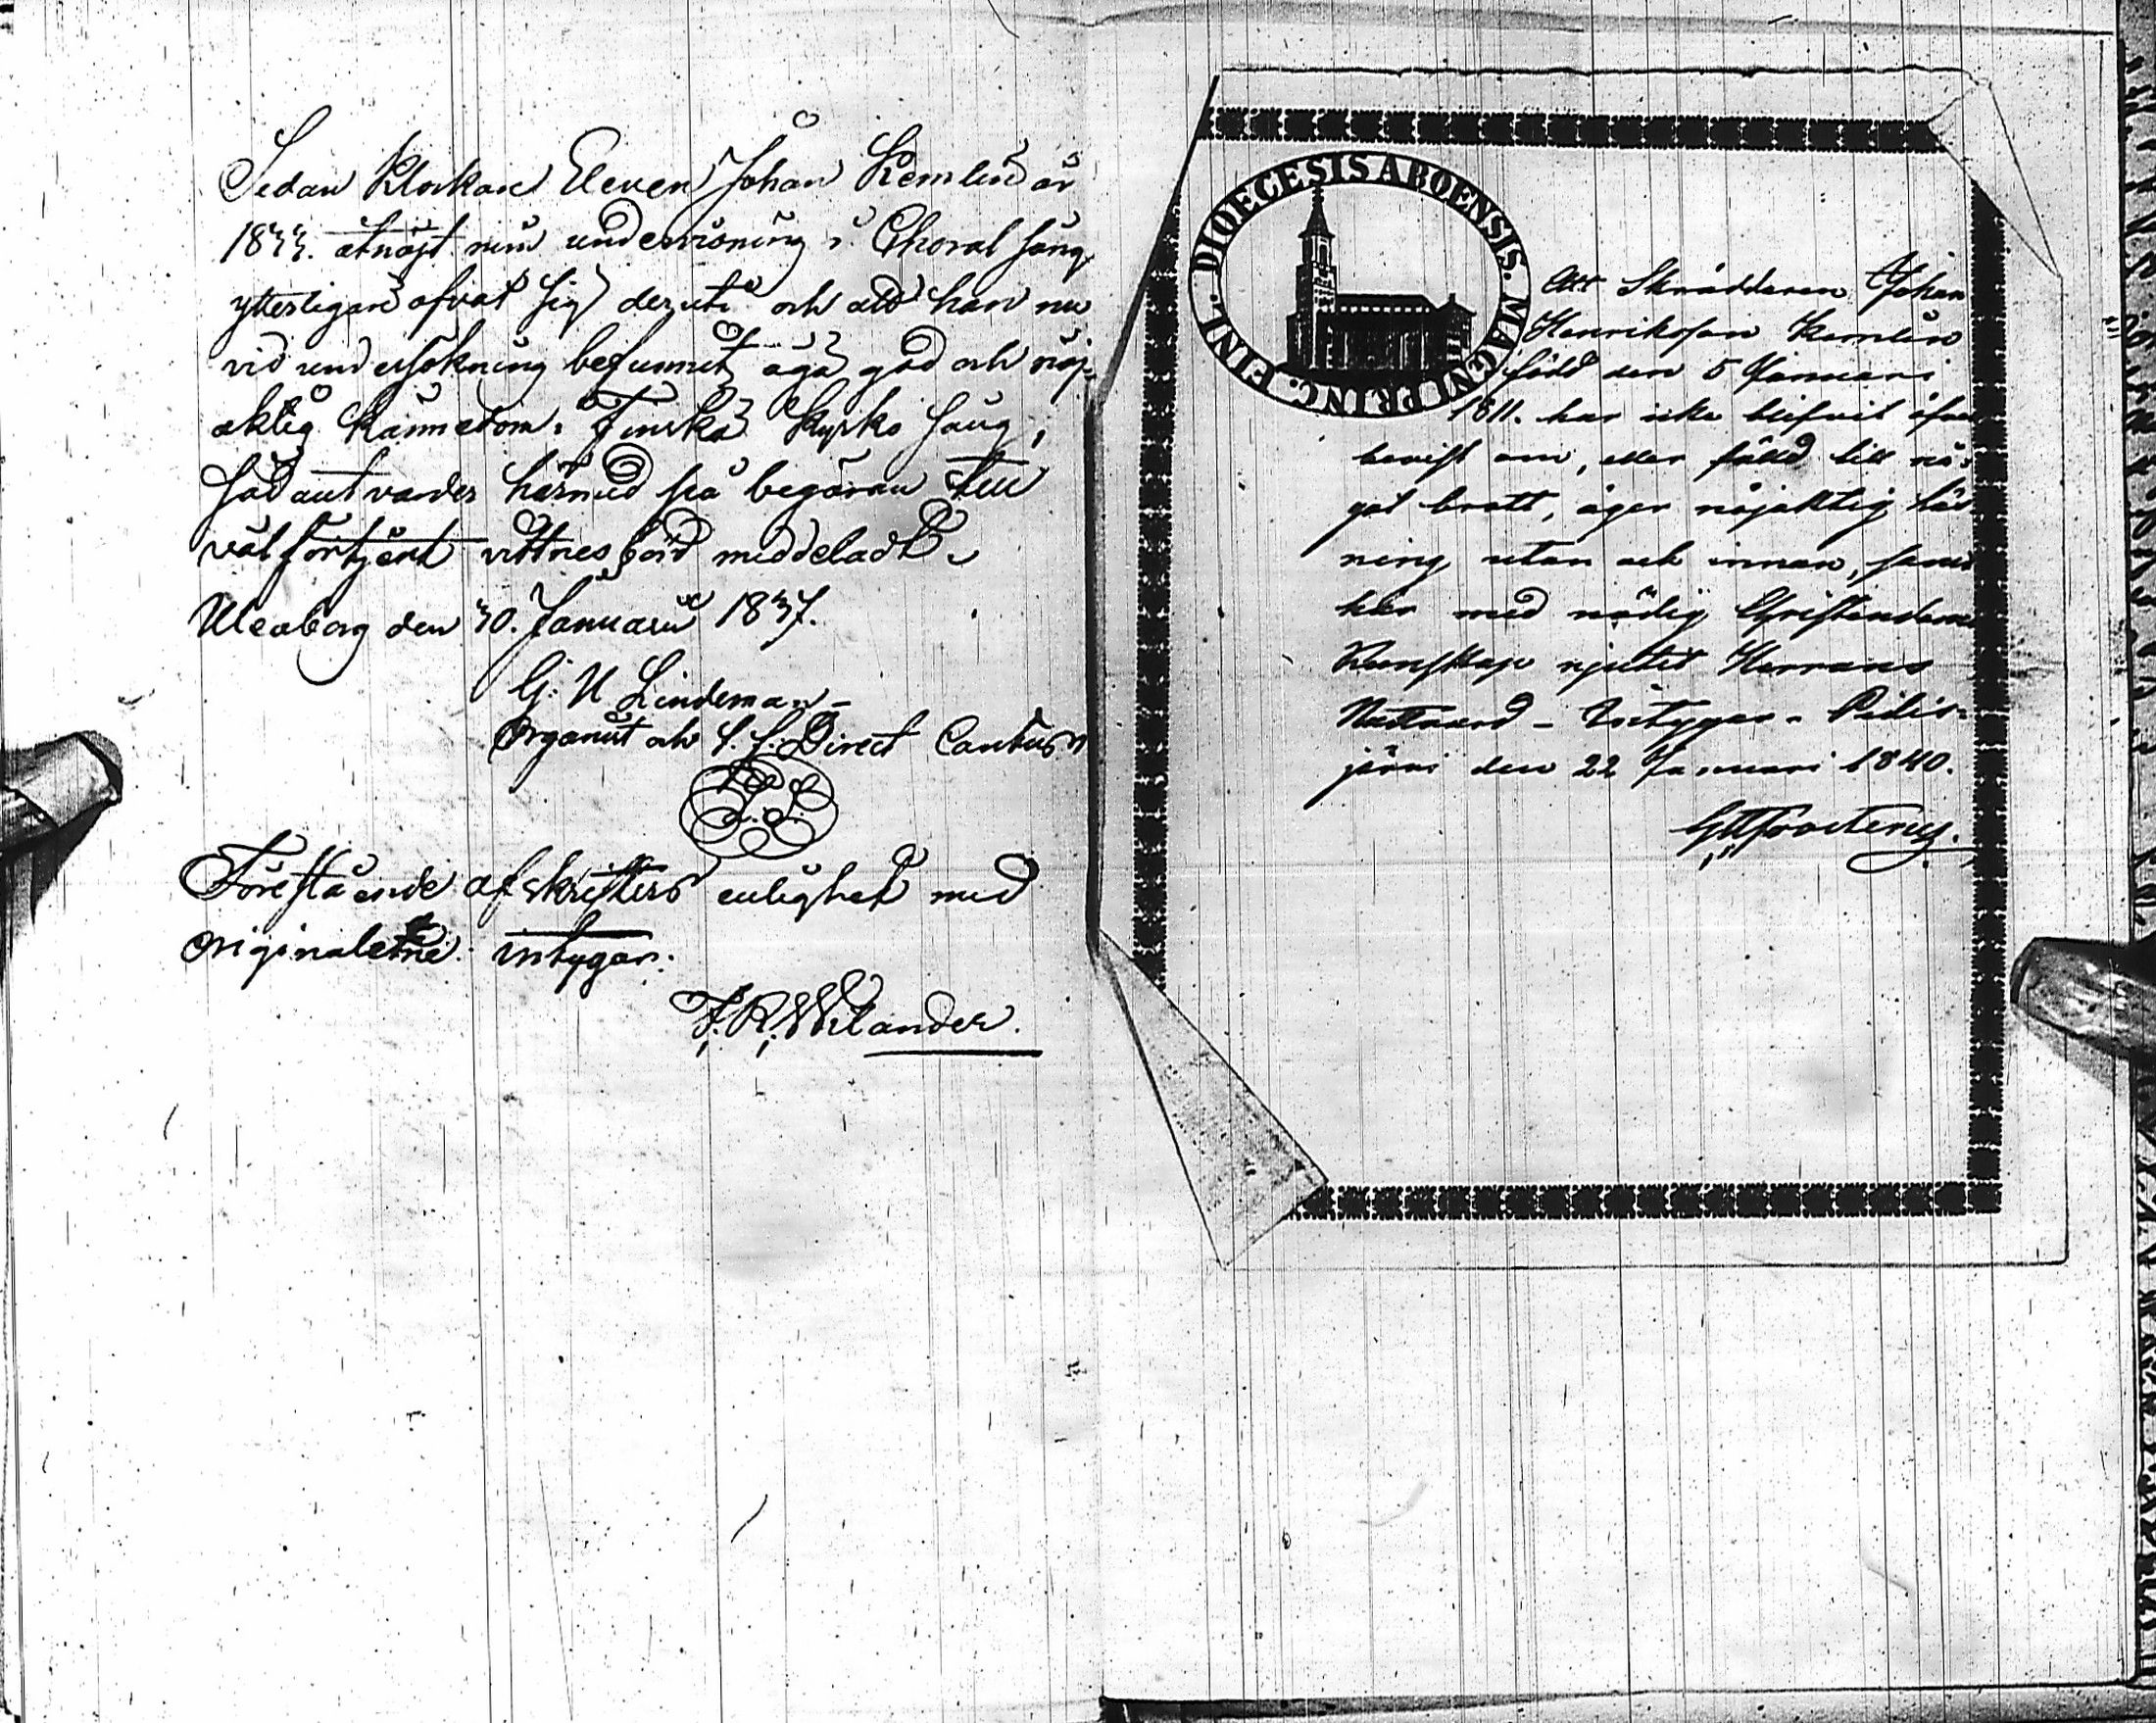 Sedan Klockare Eleven Johan Kemlin år
1833. åtnöjt min undervisning i Choral sång
ytterligare öfvat sig deruti och att han nu
vid undersökning befunnits äga god och nöj-
aktig kännedom i Finska Kyrko sång,
sådant varder härmed på begäran till
välförtjent vittnesbörd meddeladt.
Uleaborg den 30. Januarii 1837.
G: U Lindeman
Organist och Direct Cantus
L.S.
Förestående afskrifters enlighet med
originalerne: intygar:
F. R. Wilander.
DIOECESIS ABOENSIS. MAGNI PRINC. FINL.
Att Skräddaren Johan
Henriksson Kemlin
född den 5 Januari
1811. har icke blifvit öfver
bevist om, eller fälld till nå-
got brott, äger nöjaktig läs
ning utan och innan, samt
har med nödig Christendoms
Kunskap njutit Herrans
Nattvard - Intygar - Pidis-
järvi den 22 Januari 1840.